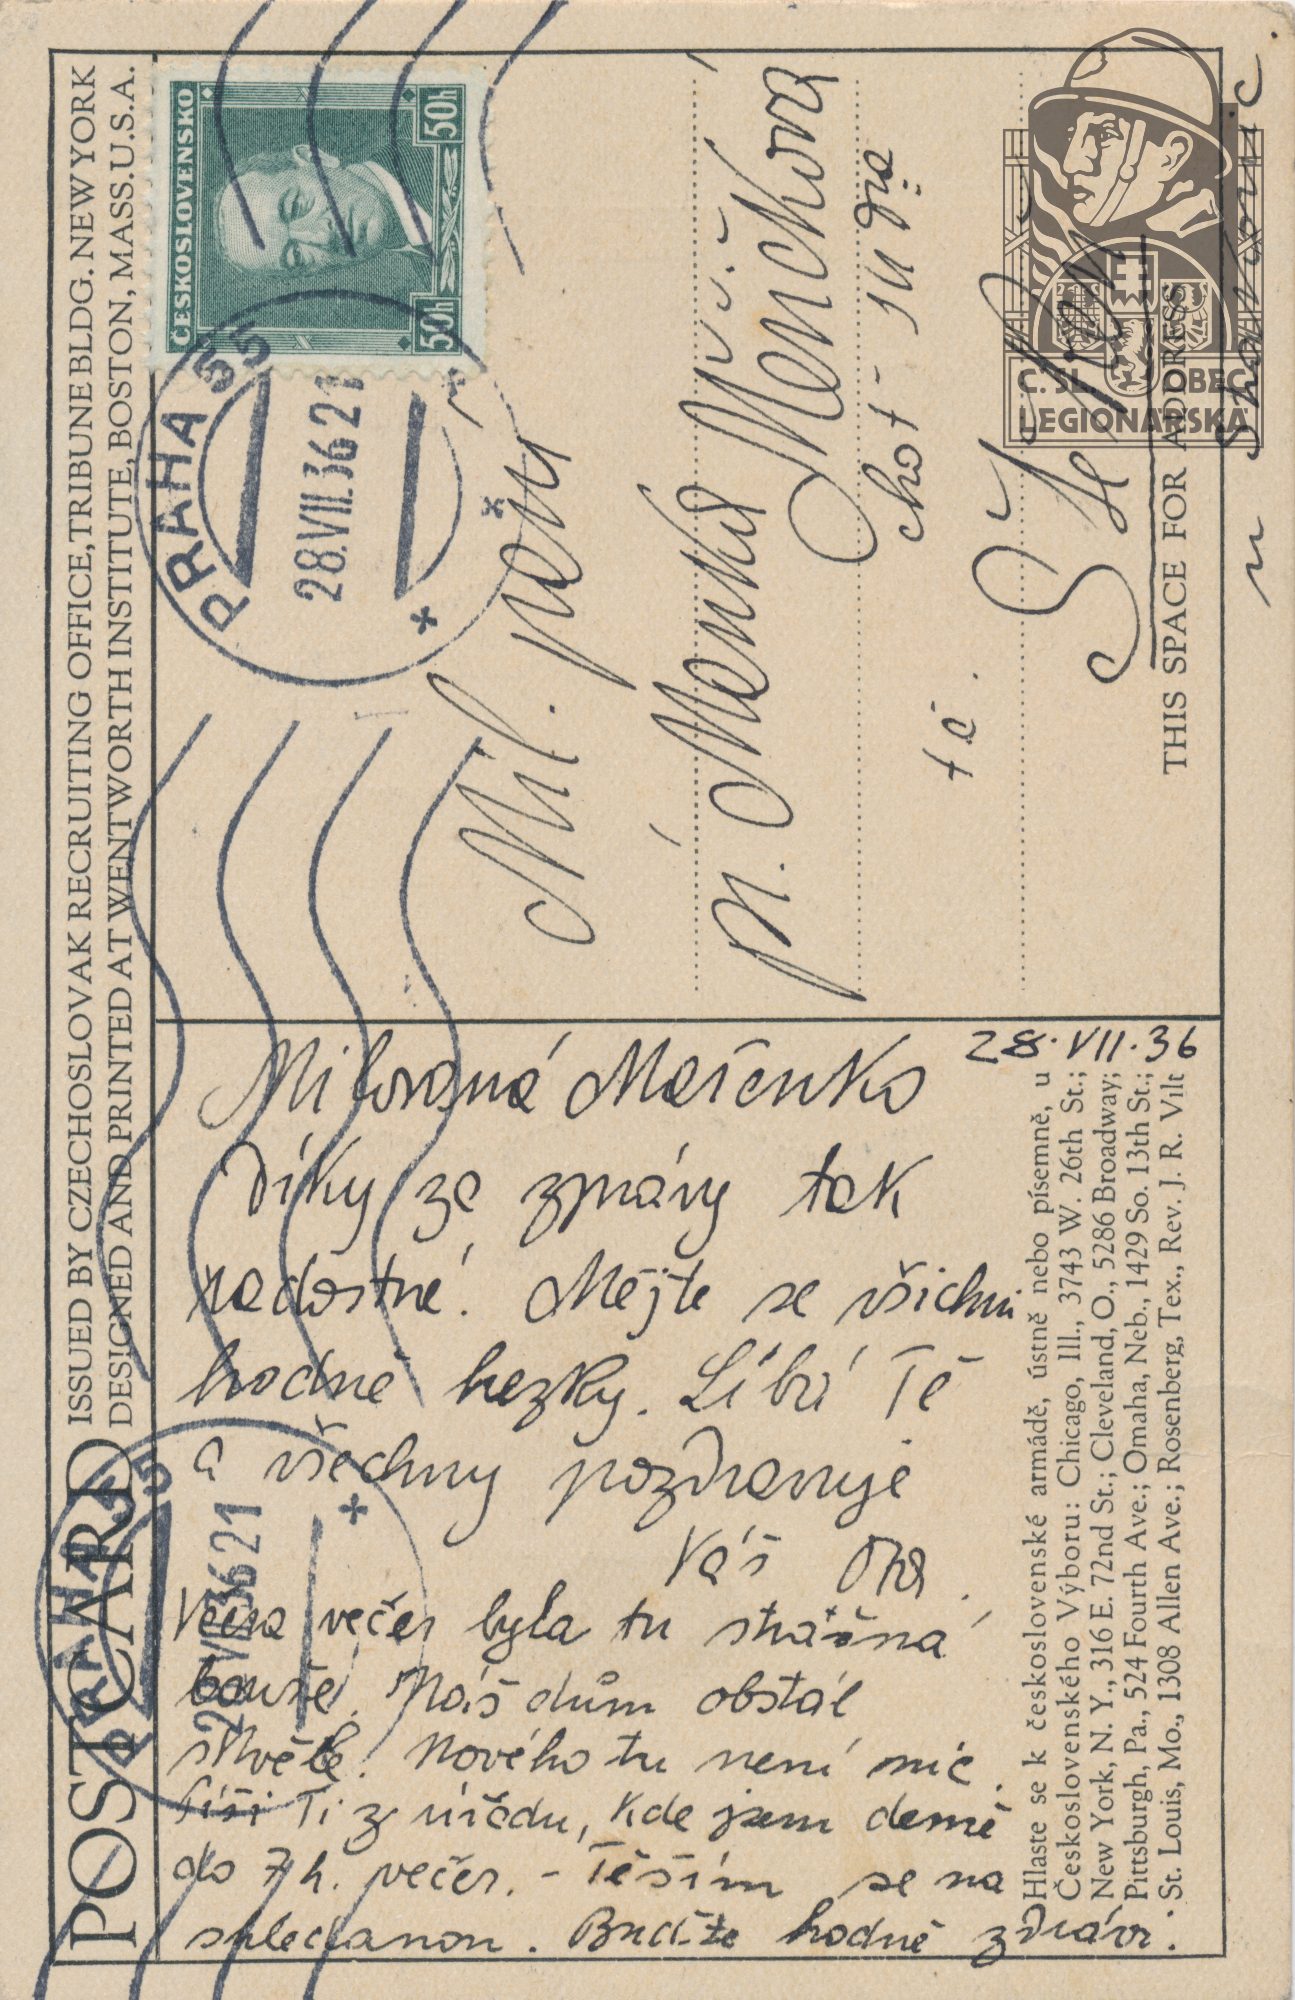 POSTCARD
ISSUED BY CZECHOSLOVAK RECRUITING OFFICE, TRIBUNE BLDG. NEW YORK
DESIGNED AND PRINTED AT WENTWORTH INSTITUTE, BOSTON, MASS. U.S.A.
28.VII.36
Milovaná Mařenko
Díky za zprávy tak
radostné. Mějte se všichni
hodně hezky. Líbá Tě
a všechny pozdravuje
Váš Ota.
Včera večer byla tu strašná
bouře. Náš dům obstál
skvěle. Nového tu není nic.
Píši Ti z úřadu, kde jsem denně
do 7 h. večer. - Těším se na
shledanou. Buďte hodně zdrávi.
Hlaste se k československé armádě, ústně nebo písemně, u
Československého Výboru: Chicago, Ill., 3743 W. 26th St.;
New York, N. Y., 316 E. 72nd St.; Cleveland, O., 5286 Broadway;
Pittsburgh, Pa., 524 Fourth Ave.; Omaha, Neb., 1429 So. 13th St.;
St. Louis, Mo., 1308 Allen Ave.; Rosenberg, Tex., Rev. J. R. Vilt
ČESKOSLOVENSKO
50h
50h
PRAHA 55
28.VII.36 21
PRAHA 55
28.VII.36 21
Mil. paní
Menčková
choť
t.č.
THIS SPACE FOR ADDRESS
Č. SL. OBEC
LEGIONÁŘSKÁ